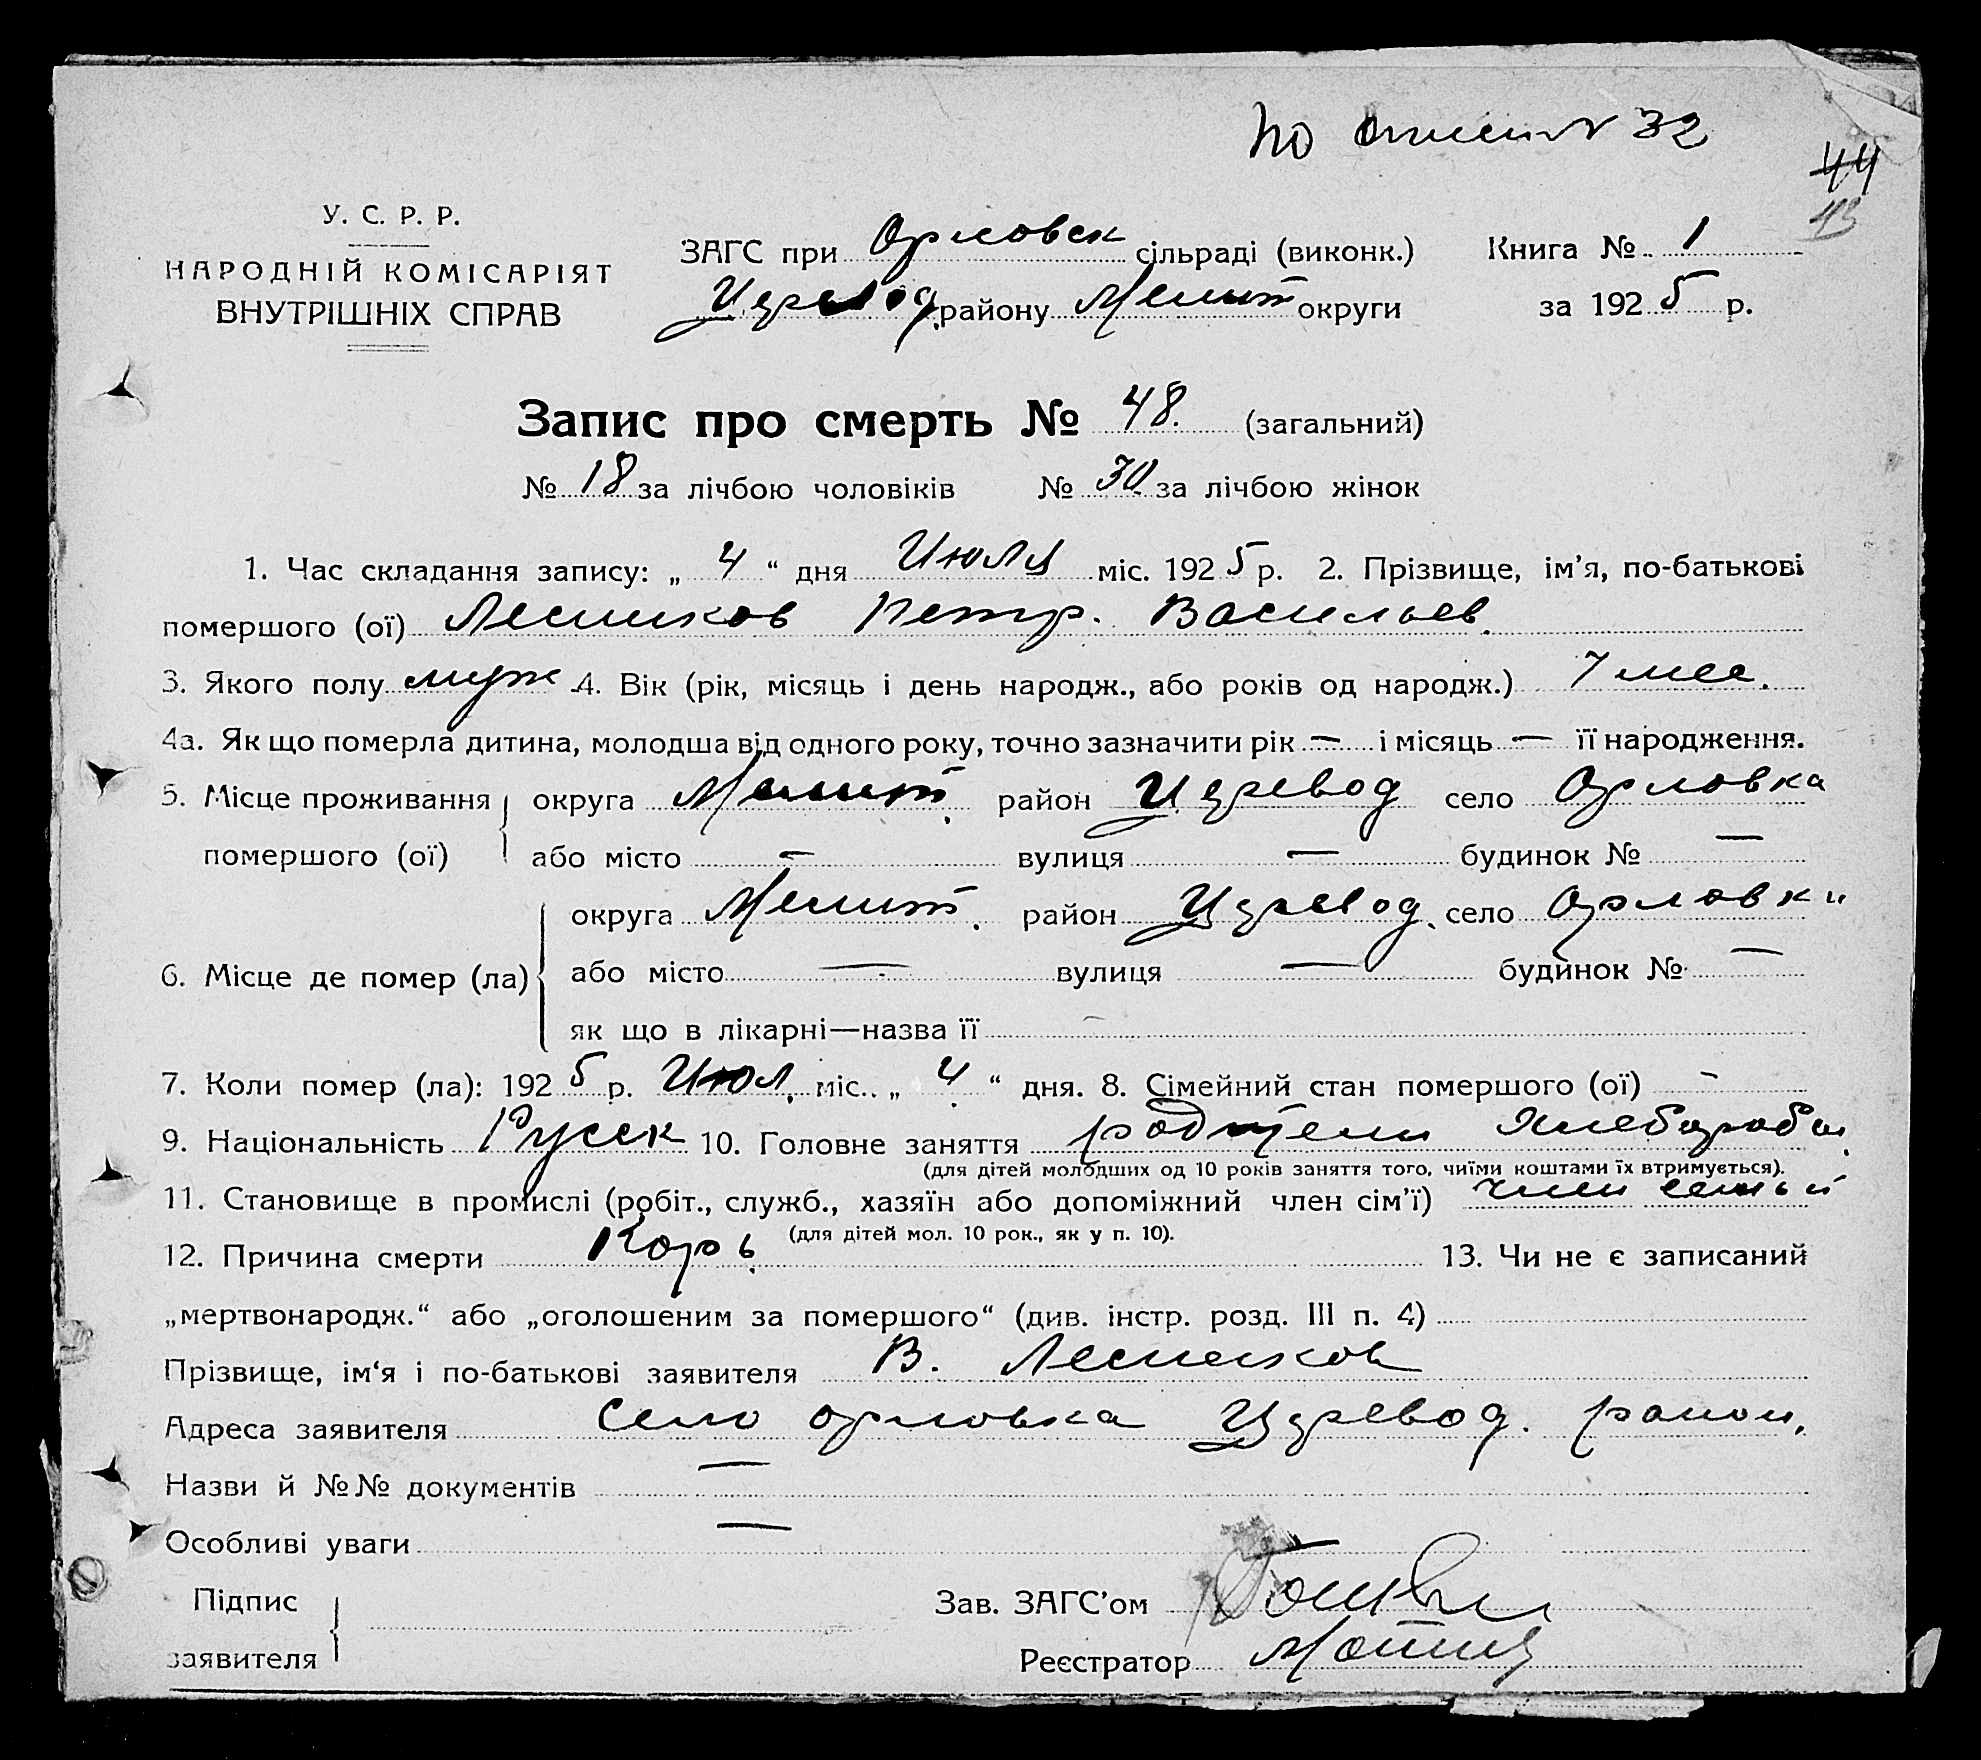 по описи № 32
44
43
У. С. Р. Р.
НАРОДНІЙ КОМІСАРІЯТ
ВНУТРІШНІХ СПРАВ
ЗАГС при Орловск сільраді (виконк.) Книга № 1
Церевод. району Мелит округи за 1925 р.
Запис про смерть № 48. (загальний)
№ 18 за лічбою чоловіків № 30 за лічбою жінок
1. Час складання запису: „ 4 “ дня Июля міс. 1925 р. 2. Прізвище, ім’я, по-батькові
помершого (ої) Лесников Петр. Васильев.
3. Якого полу муж 4. Вік (рік, місяць і день народж., або років од народж.) 7 мес.
4а. Як що померла дитина, молодша від одного року, точно зазначити рік — і місяць — її народження.
5. Місце проживання округа Мелит. район Церевод село Орловка
помершого (ої) або місто — вулиця — будинок № —
округа Мелит. район Церевод. село Орловки
6. Місце де помер (ла) або місто — вулиця — будинок № —
як що в лікарні—назва її
7. Коли помер (ла): 1925 р. Июл. міс. „ 4 “ дня. 8. Сімейний стан помершого (ої) -
9. Національність Русск 10. Головне заняття родители Хлеборобы
(для дітей молодших од 10 років заняття того, чиїми коштами їх втримується).
11. Становище в промислі (робіт., служб., хазяїн або допоміжний член сім’ї) член семьи
(для дітей мол. 10 рок., як у п. 10).
12. Причина смерти Корь. 13. Чи не є записаний
„мертвонародж.“ або „оголошеним за помершого“ (див. інстр. розд. III п. 4)
Прізвище, ім‘я і по-батькові заявителя В. Лесников
Адреса заявителя Село Орловка Церевод. район.
Назви й №№ документів —
Особливі уваги —
Підпис
заявителя
Зав. ЗАГС’ом
Реєстратор